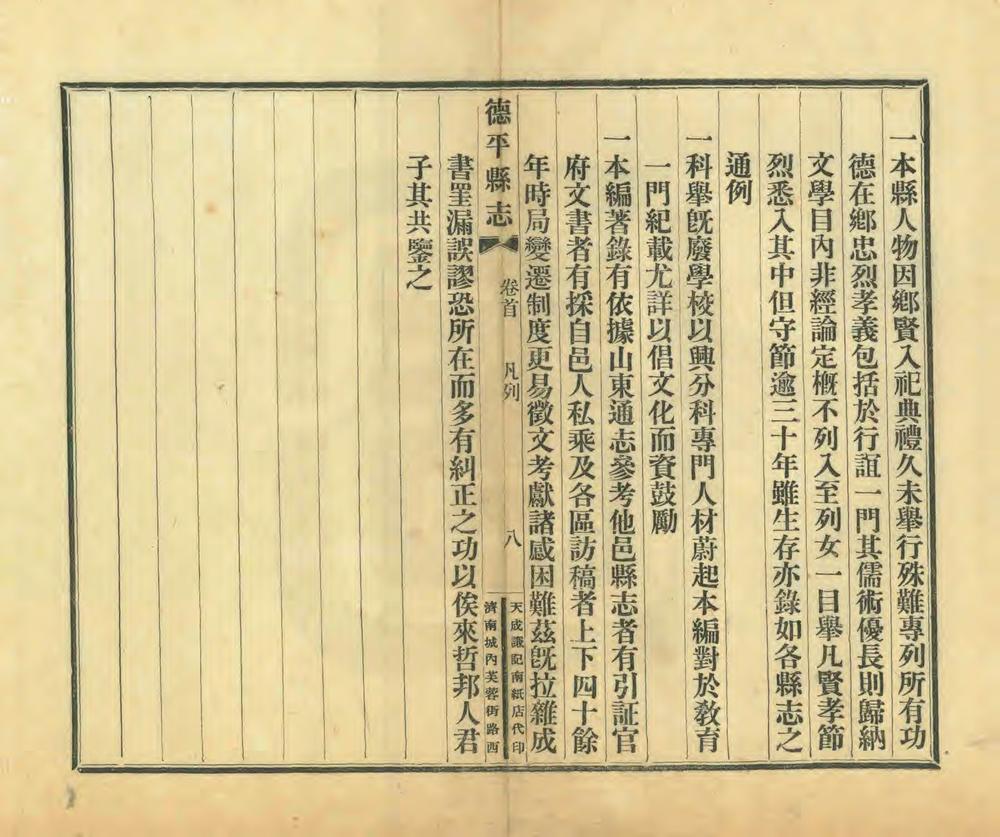 一本縣人物因鄉賢入祀典禮久未舉行殊難專列所有功
德在鄉忠烈孝義包括於行誼一門其儒術優長則歸納
文學目內非經論定槪不列入至列女一目舉凡賢孝節
烈悉入其中但守節逾三十年雖生存亦錄如各縣志之
通例
一科舉旣廢學校以興分科專門人材蔚起本編對於敎育
一門紀載尤詳以倡文化而資鼓勵
一本編著錄有依據山東通志參考他邑縣志者有引証官
府文書者有採自邑人私乘及各區訪稿者上下四十餘
年時局變遷制度更易徵文考獻諸感困難茲旣拉雜成
德平縣志
卷首
凡列
八
天成誠記南紙店代印
濟南城內芙蓉街路西
書罣漏誤謬恐所在而多有糾正之功以俟來哲邦人君
子其共鑒之